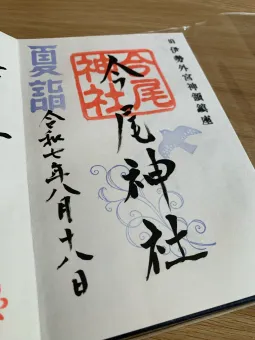 伊勢外宮神領鎮座
今尾
神社
今尾神社
夏詣
令和七年八月十八日